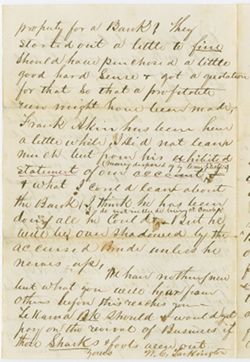 property for a Bank! They
started out a little to fine
should have purchased a little
good hard sense & got a quotation
for that so that a profitable
run might have been made
Frank Akin has been here
a little while, I did not learn
much but from his exhibited
statement of our account
& what I could learn about
the Bank I think he has been
doing all he could but he
will be over shadowed by the
accursed Bonds unless he
nerves up,
We have nothing new
but what you will hear from
others before this reaches you
Bk should & would yet
pay on the revival of Business if
those Sharks & fools were out
Yours W. C. Tarkington